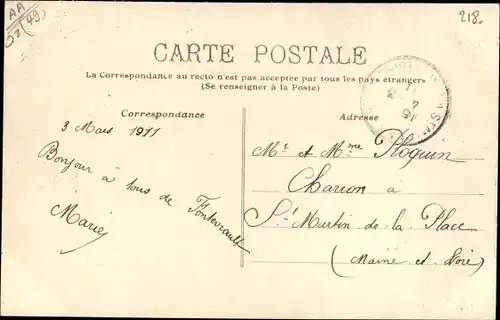 AA
(49)
218.
CARTE POSTALE
La Correspondance au recto n'est pas acceptée par tous les pays étrangers
(Se renseigner à la Poste)
Correspondance
3 Mars 1911
Bonjour à tous de Fontevrault
Marie
Adresse
Mr et Mme Ploquin
Charron a
St Martin de la Place
(Maine et Loire)